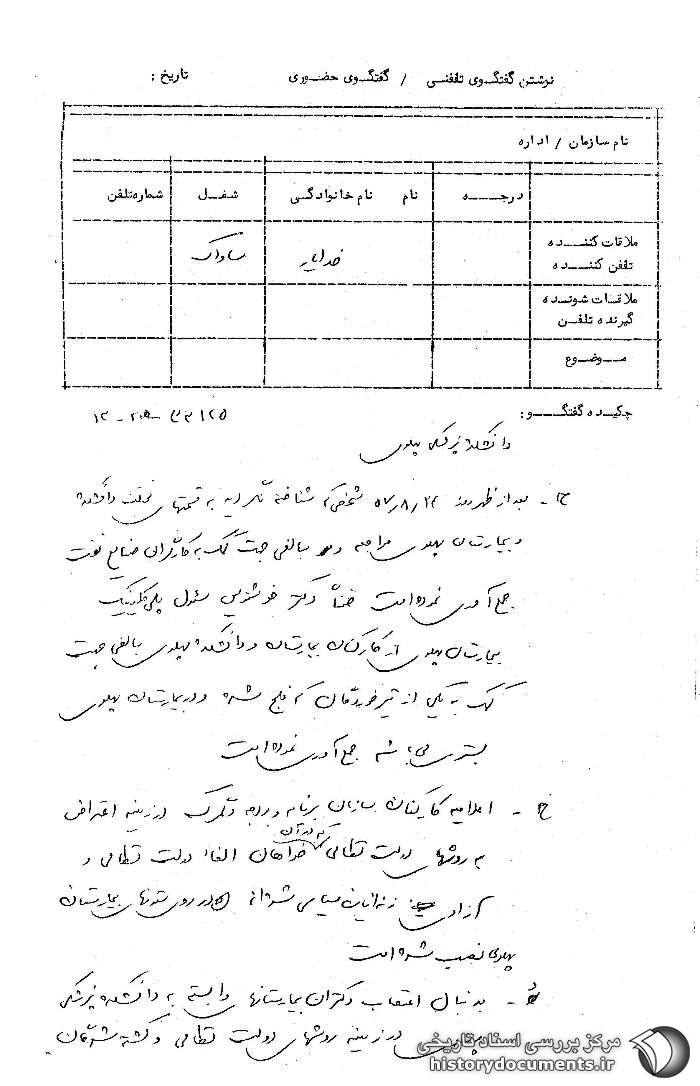 نوشتن گفتگوی تلفنی / گفتگوی حضوری تاریخ :
نام سازمان / اداره
درجه نام نام خانوادگی شغل شماره تلفن
ملاقات کننده
تلفن کننده خدایار ساواک
ملاقات شونده
گیرنده تلفن
موضوع
چکیده گفتگو :
دانشکده پزشکی پهلوی
ج - بعد از ظهر روز ۵۷/۸/۲۲ شخصی که شناخته نگردیده به قسمتهای مختلف دانشکده
و بیمارستان پهلوی مراجعه و مبالغی جهت کمک به کارگران صنایع نفت
جمع آوری نموده است ضمناً دکتر خوشنویس مسئول پلی کلینیک
بیمارستان پهلوی از کارکنان بیمارستان و دانشکده پهلوی مبالغی جهت
کمک به یکی از تیرخوردگان که فلج شده و در بیمارستان پهلوی
بستری می باشد جمع آوری نموده است
خ - اعلامیه کارکنان سازمان برنامه و بودجه در زمینه اعتراض
به روشهای دولت نظامی که در آن خواهان الغاء دولت نظامی و
آزادی زندانیان سیاسی شده اند در روی ستونهای بیمارستان
پهلوی نصب شده است
د - بدنبال اعتصاب دکتران بیمارستانهای وابسته به دانشکده پزشکی
در زمینه روشهای دولت نظامی و کشته شدگان
مرکز بررسی اسناد تاریخی
historydocuments.ir